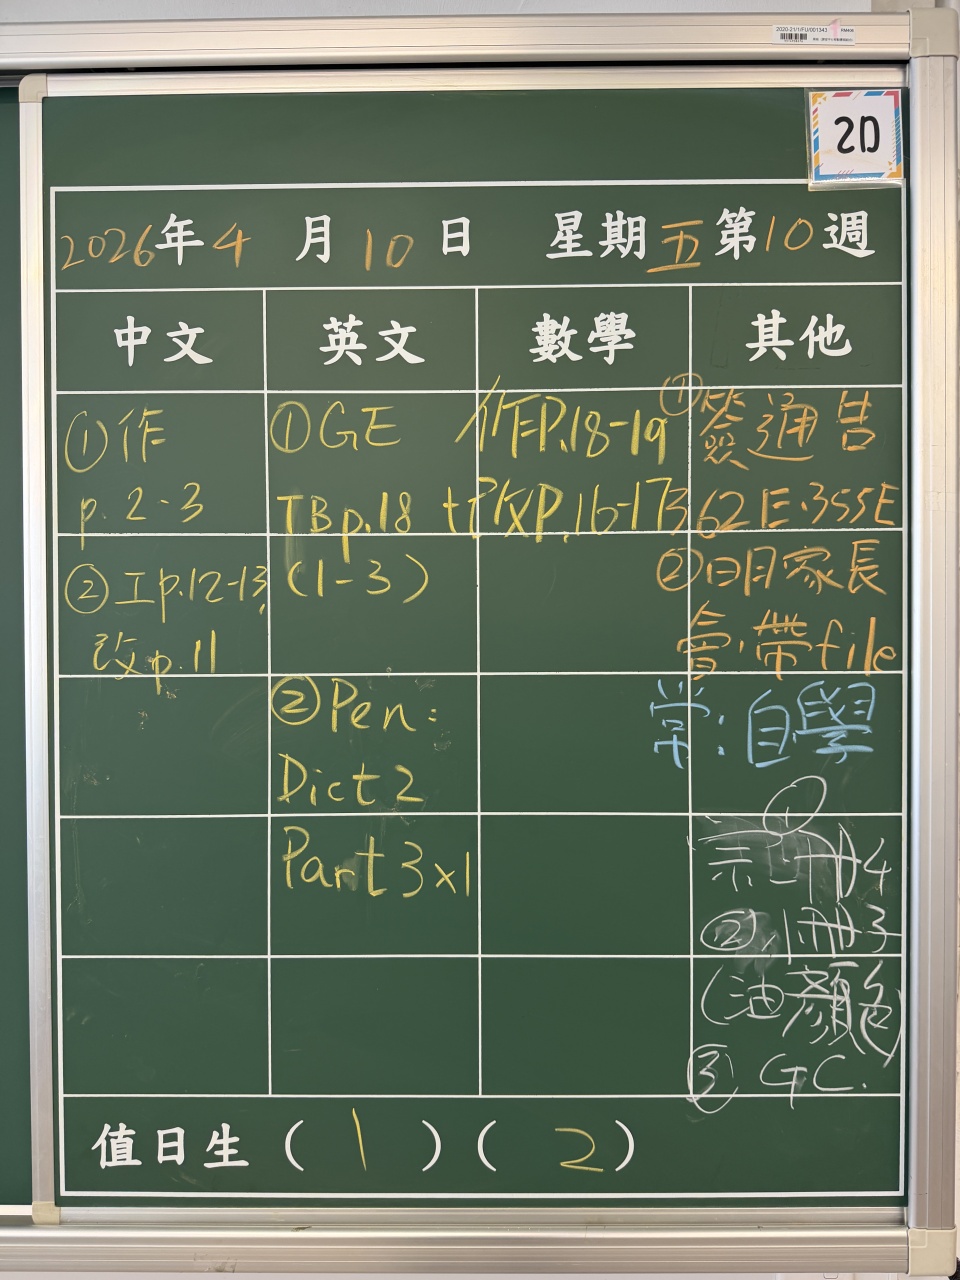 2020-21/1/FU/001343
RM406
2D
2026年4月10日 星期五第10週
中文
英文
數學
其他
①作
p.2-3
②工p.12-13,
改p.11
①GE
TBp.18
(1-3)
②Pen:
Dict 2
Part 3x1
作P.18-19
+改P.16-17
①簽通告
362E.355E
②日月.家長
會.帶file
常:自學
①
宗 冊4
②小冊子
(油顏色)
③GC.
值日生(1)(2)